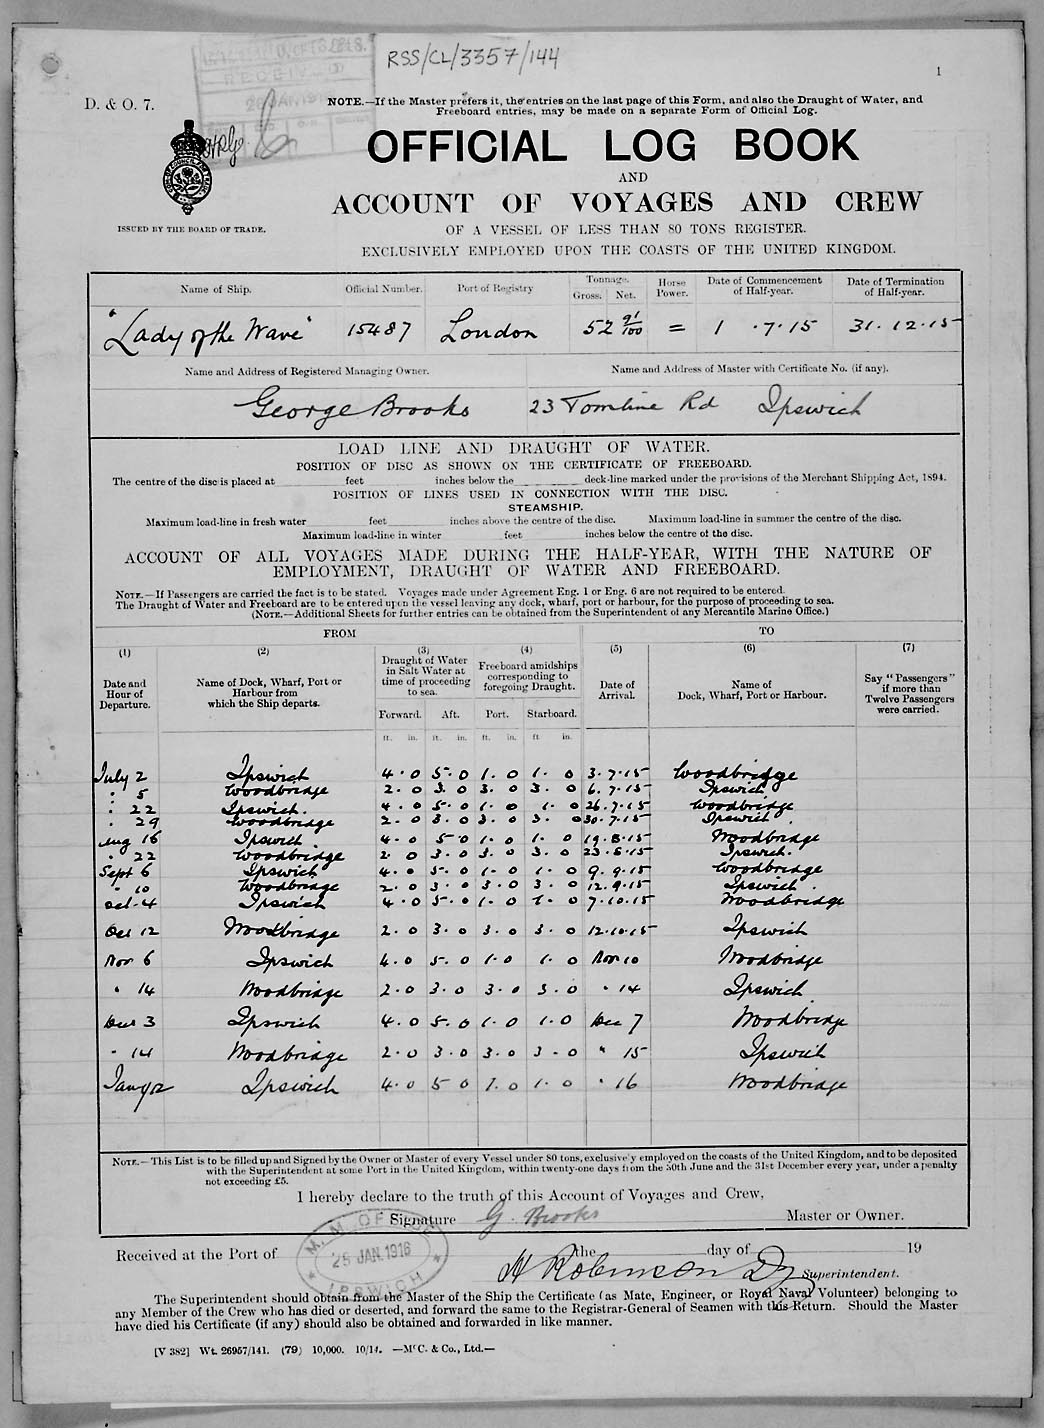 RSS/CL/3357/144
1
RECEIVED
D. & O. 7.
NOTE.—If the Master prefers it, the entries on the last page of this Form, and also the Draught of Water, and
Freeboard entries, may be made on a separate Form of Official Log.
OFFICIAL LOG BOOK
AND
ACCOUNT OF VOYAGES AND CREW
ISSUED BY THE BOARD OF TRADE.
OF A VESSEL OF LESS THAN 80 TONS REGISTER.
EXCLUSIVELY EMPLOYED UPON THE COASTS OF THE UNITED KINGDOM.
Name of Ship. Official Number. Port of Registry Tonnage. Gross. Net. Horse Power. Date of Commencement of Half-year. Date of Termination of Half-year.
"Lady of the Wave" 15487 London 52 91/100 = 1 . 7 . 15 31 . 12 . 15
Name and Address of Registered Managing Owner. Name and Address of Master with Certificate No. (if any).
George Brooks 23 Tomline Rd Ipswich
LOAD LINE AND DRAUGHT OF WATER.
POSITION OF DISC AS SHOWN ON THE CERTIFICATE OF FREEBOARD.
The centre of the disc is placed at feet inches below the deck-line marked under the provisions of the Merchant Shipping Act, 1894.
POSITION OF LINES USED IN CONNECTION WITH THE DISC.
STEAMSHIP.
Maximum load-line in fresh water feet inches above the centre of the disc. Maximum load-line in summer the centre of the disc.
Maximum load-line in winter feet inches below the centre of the disc.
ACCOUNT OF ALL VOYAGES MADE DURING THE HALF-YEAR, WITH THE NATURE OF
EMPLOYMENT, DRAUGHT OF WATER AND FREEBOARD.
NOTE.—If Passengers are carried the fact is to be stated. Voyages made under Agreement Eng. 1 or Eng. 6 are not required to be entered.
The Draught of Water and Freeboard are to be entered upon the vessel leaving any dock, wharf, port or harbour, for the purpose of proceeding to sea.
(NOTE.—Additional Sheets for further entries can be obtained from the Superintendent of any Mercantile Marine Office.)
FROM TO
(1) (2) (3) (4) (5) (6) (7)
Date and Hour of Departure. Name of Dock, Wharf, Port or Harbour from which the Ship departs. Draught of Water in Salt Water at time of proceeding to sea. Freeboard amidships corresponding to foregoing Draught. Date of Arrival. Name of Dock, Wharf, Port or Harbour. Say "Passengers" if more than Twelve Passengers were carried.
Forward. Aft. Port. Starboard.
ft. in. ft. in. ft. in. ft in.
July 2 Ipswich 4 . 0 5 . 0 1 . 0 1 . 0 3 . 7 . 15 Woodbridge
" 5 Woodbridge 2 . 0 3 . 0 3 . 0 3 . 0 6 . 7 . 15 Ipswich
" 22 Ipswich 4 . 0 5 . 0 1 . 0 1 . 0 26 . 7 . 15 Woodbridge
" 29 Woodbridge 2 . 0 3 . 0 3 . 0 3 . 0 30 . 7 . 15 Ipswich
Aug 16 Ipswich 4 . 0 5 0 1 . 0 1 . 0 19 . 8 . 15 Woodbridge
" 22 Woodbridge 2 . 0 3 . 0 3 . 0 3 . 0 23 . 8 . 15 Ipswich.
Sept 6 Ipswich 4 . 0 5 . 0 1 . 0 1 . 0 9 . 9 . 15 Woodbridge
" 10 Woodbridge 2 . 0 3 . 0 3 . 0 3 . 0 12 . 9 . 15 Ipswich
Oct 4 Ipswich 4 . 0 5 . 0 1 . 0 1 . 0 7 . 10 . 15 Woodbridge
Oct 12 Woodbridge 2 . 0 3 . 0 3 . 0 3 . 0 12 . 10 . 15 Ipswich
Nov 6 Ipswich 4 . 0 5 . 0 1 . 0 1 . 0 Nov 10 Woodbridge
" 14 Woodbridge 2 . 0 3 . 0 3 . 0 3 . 0 " 14 Ipswich
Dec 3 Ipswich 4 . 0 5 . 0 1 . 0 1 . 0 Dec 7 Woodbridge
" 14 Woodbridge 2 . 0 3 . 0 3 . 0 3 . 0 " 15 Ipswich
Ipswich 4 . 0 5 0 1 . 0 1 . 0 " 16 Woodbridge
NOTE.—This List is to be filled up and Signed by the Owner or Master of every Vessel under 80 tons, exclusively employed on the coasts of the United Kingdom, and to be deposited
with the Superintendent at some Port in the United Kingdom, within twenty-one days from the 30th June and the 31st December every year, under a penalty
not exceeding £5.
I hereby declare to the truth of this Account of Voyages and Crew,
Signature G. Brooks Master or Owner.
M. M. OFFICE 25 JAN. 1916 IPSWICH
Received at the Port of the day of 19
H Robinson Dy Superintendent.
The Superintendent should obtain from the Master of the Ship the Certificate (as Mate, Engineer, or Royal Naval Volunteer) belonging to
any Member of the Crew who has died or deserted, and forward the same to the Registrar-General of Seamen with this Return. Should the Master
have died his Certificate (if any) should also be obtained and forwarded in like manner.
[V 382] Wt. 26957/141. (79) 10,000. 10/14. —McC. & Co., Ltd.—